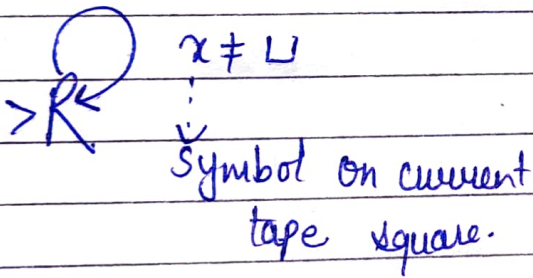 x ≠ ⊔
>R
Symbol on current
tape square.